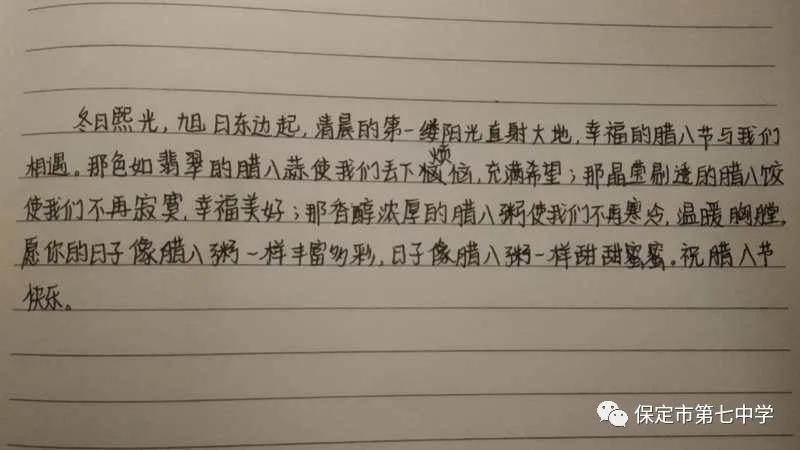 冬日熙光，旭日东边起，清晨的第一缕阳光直射大地，幸福的腊八节与我们
相遇。那色如翡翠的腊八蒜使我们丢下烦恼，充满希望；那晶莹剔透的腊八饺
使我们不再寂寞，幸福美好；那香醇浓厚的腊八粥使我们不再寒冷，温暖胸膛，
愿你的日子像腊八粥一样丰富多彩，日子像腊八粥一样甜甜蜜蜜。祝腊八节
快乐。
保定市第七中学